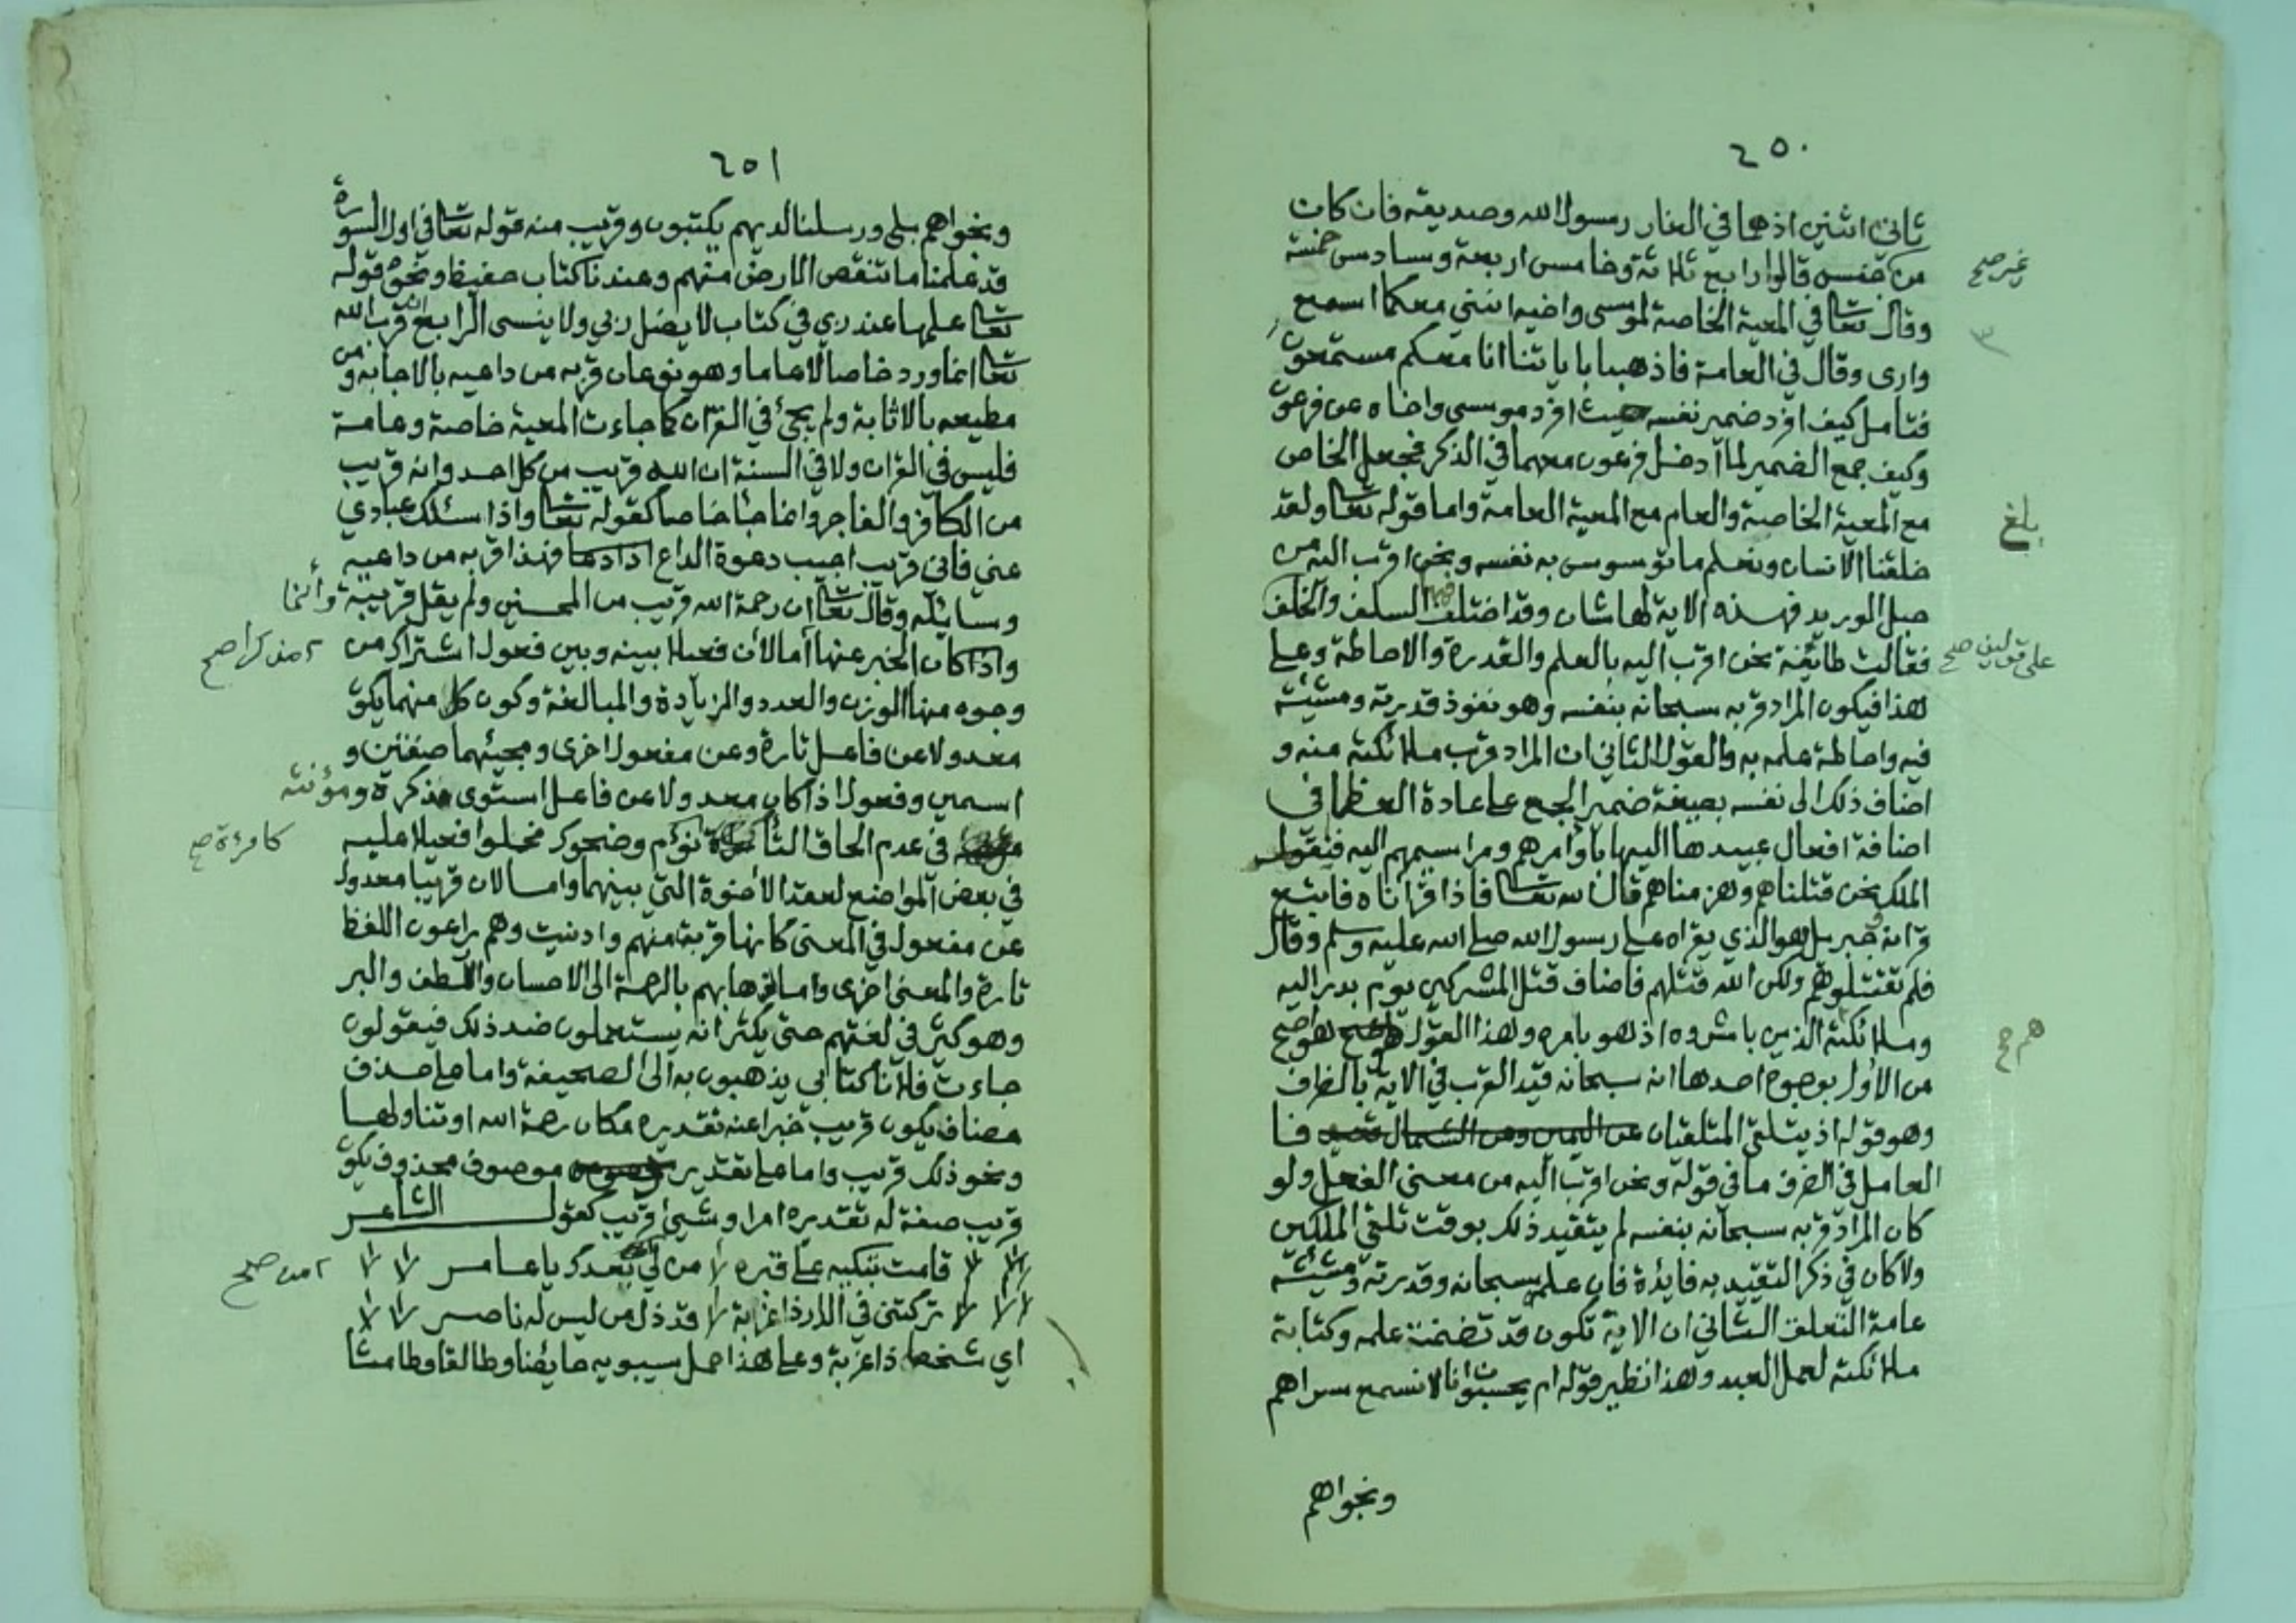 ٢٥٠
ثاني اثنين اذ هما في الغار رسول الله وصديقه فان كان
من غير جنسه قالوا رابع ثلاثة وخامس اربعة وسادس خمسة
وقال تعا في المعية الخاصة لموسى واخيه انني معكما اسمع
وارى وقال في العامة فاذهبا باياتنا انا معكم مستمعون
فتامل كيف افرد ضمير نفسه حيث افرد موسى واخاه عن فرعون
وكيف جمع الضمير لما ادخل فرعون معهما في الذكر فجعل الخاص
مع المعية الخاصة والعام مع المعية العامة واما قوله تعا ولقد
بلغ
خلقنا الانسان ونعلم ما توسوس به نفسه ونحن اقرب اليه من
حبل الوريد فهذه الاية لها شان وقد اختلف فيها السلف والخلف
على قولين صح
فقالت طائفة نحن اقرب اليه بالعلم والقدرة والاحاطة وعلى
هذا فيكون المراد قربه سبحانه بنفسه وهو نفوذ قدرته ومشيئته
فيه واحاطة علمه به والقول الثاني ان المراد قرب ملائكته منه و
اضاف ذلك الى نفسه بصيغة ضمير الجمع على عادة العظما في
اضافة افعال عبيدها اليها باوامرهم ومراسيمهم اليه فيقول
الملك نحن قتلناهم وهزمناهم قال الله تعا فاذا قراناه فاتبع
قرانه وجبريل هو الذي يقراه على رسول الله صلى الله عليه وسلم وقال
فلم تقتلوهم ولكن الله قتلهم فاضاف قتل المشركين يوم بدر اليه
وملائكته هم الذين باشروه اذ هو بامره وهذا القول هو اصح
من الاول بوجوه احدها انه سبحانه قيد القرب في الاية بالظرف
وهو قوله اذ يتلقى المتلقيان عن اليمين وعن الشمال قعيد فا
العامل في الظرف ما في قوله ونحن اقرب اليه من معنى الفعل ولو
كان المراد قربه سبحانه بنفسه لم يتقيد ذلك بوقت تلقي الملكين
ولا كان في ذكر التقييد به فايدة فان علمه سبحانه وقدرته ومشيئته
عامة التعلق الثاني ان الاية تكون قد تضمنت علمه وكتابة
ملائكته لعمل العبد وهذا نظير قوله ام يحسبون انا لا نسمع سرهم
ونجواهم
٢٥١
ونجواهم بلى ورسلنا لديهم يكتبون وقريب منه قوله تعا في اول السورة
قد علمنا ما تنقص الارض منهم وعندنا كتاب حفيظ ونحوه قوله
تعا علمها عند ربي في كتاب لا يضل ربي ولا ينسى الرابع ان قرب الله
تعا انما ورد خاصا لا عاما وهو نوعان قربه من داعيه بالاجابة ومن
مطيعه بالاثابة ولم يجئ في القران كما جاءت المعية خاصة وعامة
فليس في القران ولا في السنة ان الله قريب من كل احد وانه قريب
من الكافر والفاجر وانما جا خاصا كقوله تعا واذا سئلك عبادي
عني فاني قريب اجيب دعوة الداع اذا دعا فهذا قربه من داعيه
وسائله وقال تعا ان رحمة الله قريب من المحسنين ولم يقل قريبة وانما
واذا كان الخبر عنها مذكرا صح اما لان فعيلا بينه وبين فعول اشتراك من
وجوه منها الوزن والعدد والزيادة والمبالغة وكون كل منهما يكون
معدولا عن فاعل تارة وعن مفعول اخرى ومجيئهما صفتين و
اسمين وفعول اذا كان معدولا عن فاعل استوى مذكره ومؤنثه
في عدم الحاق التا كامرءة صح نؤم وضحوك فحملوا فعيلا عليه
في بعض المواضع لعقد الاخوة التي بينهما واما لان قريبا معدول
عن مفعول في المعنى كانها قربة منهم وادنيت وهم يراعون اللفظ
تارة والمعنى اخرى واما ذهابهم بالرحمة الى الاحسان واللطف والبر
وهو كثير في لغتهم حتى يكثر انه يستعملون ضد ذلك فيقولون
جاءت فلانا كتابي يذهبون به الى الصحيفة واما على حذف
مضاف يكون قريب خبرا عنه تقديره مكان رحمة الله او تناولها
ونحو ذلك قريب واما على تقدير موصوف محذوف يكون
قريب صفة له تقديره امر او شيئ قريب كقول الشاعر
قامت تبكيه على قبره من لي من صح بعدك يا عامر
تركتني في الدار ذا غربة قد ذل من ليس له ناصر
اي شخصا ذا غربة وعلى هذا حمل سيبويه حايضا وطالقا وطامثا